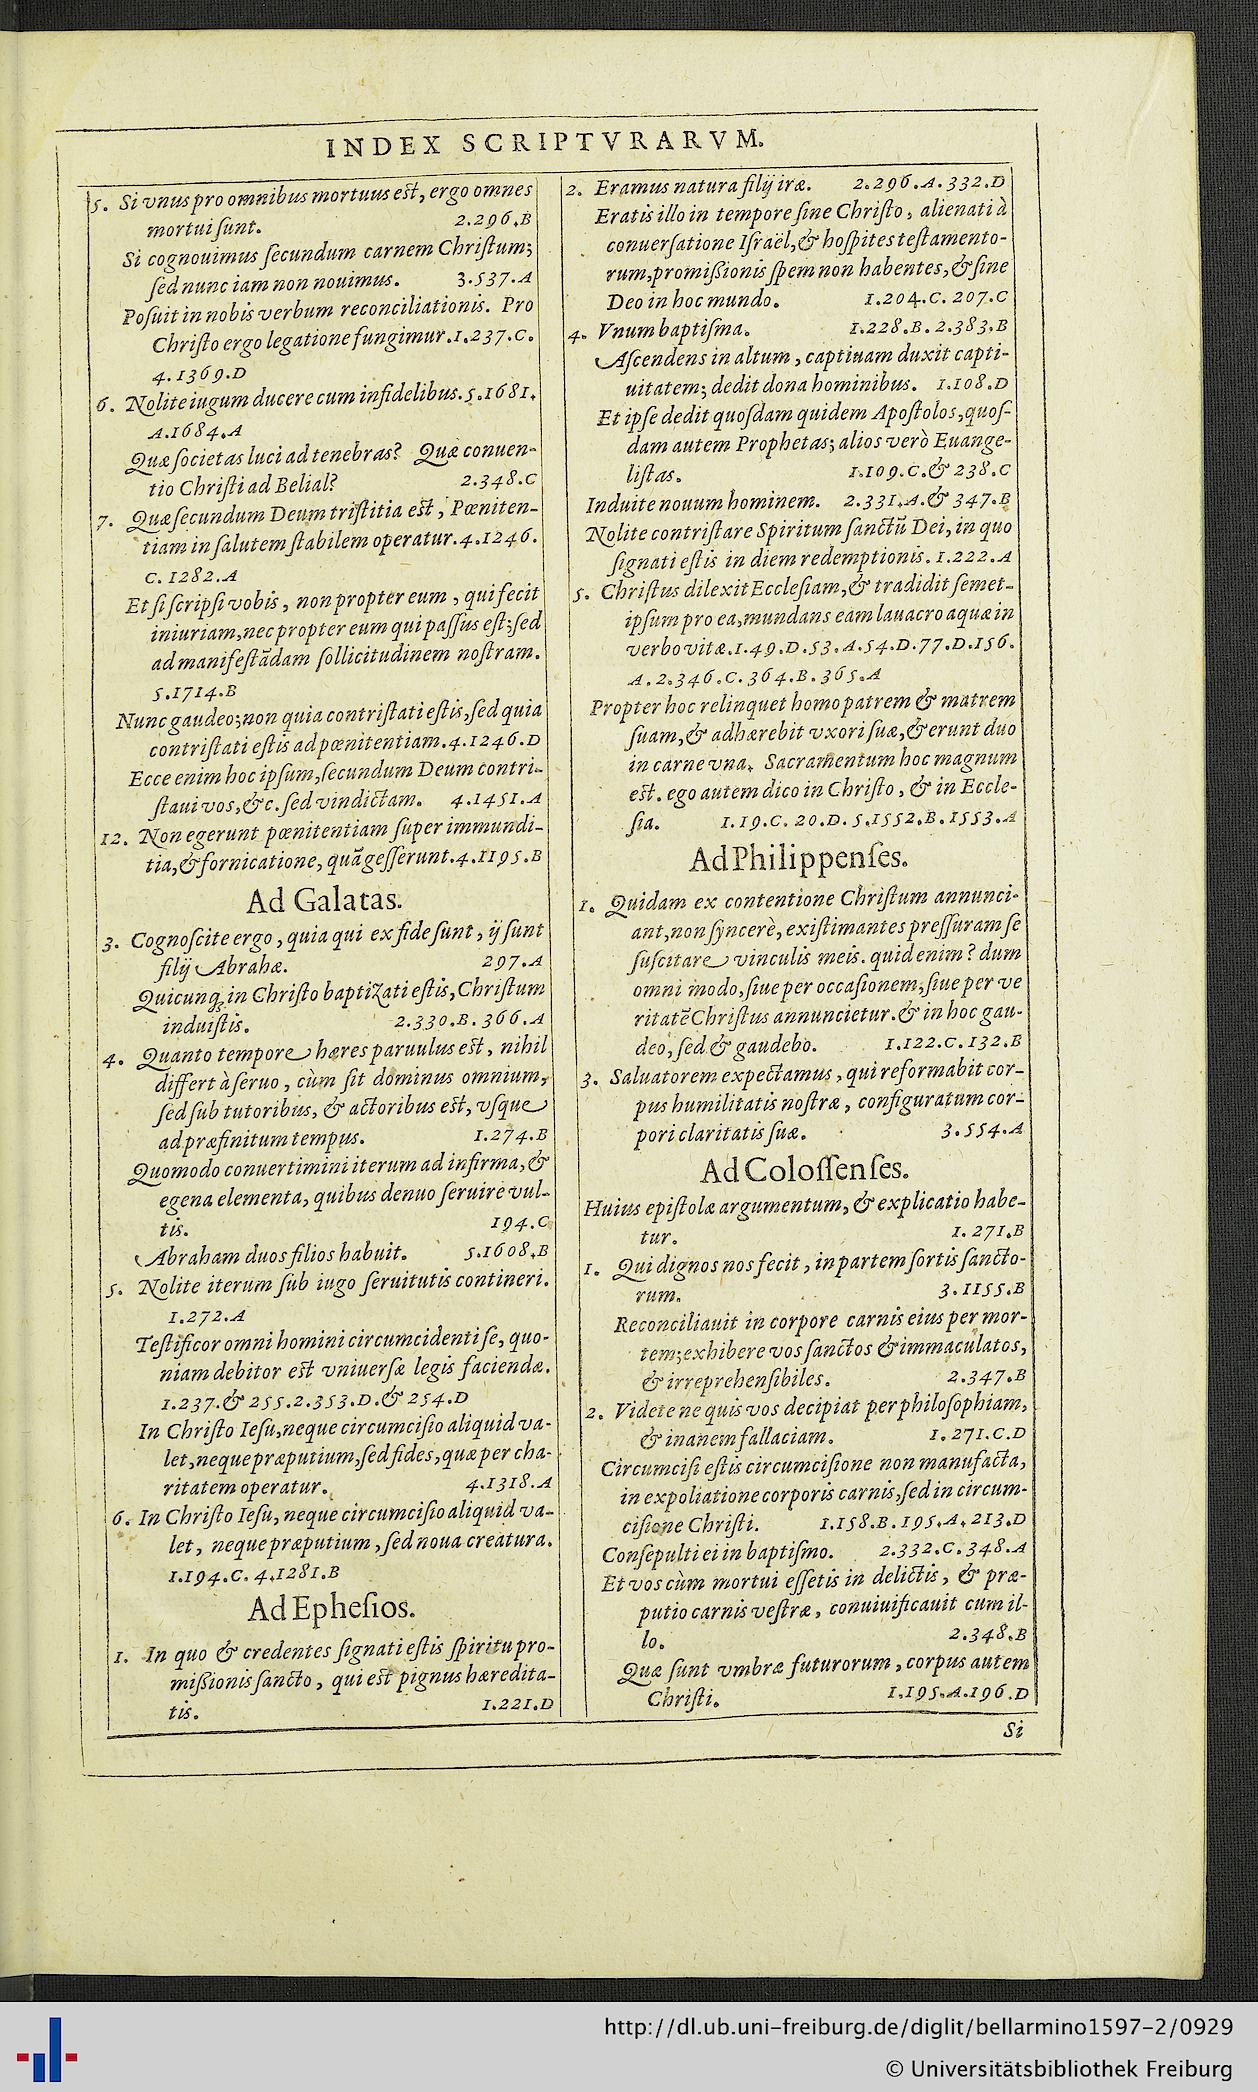 INDEX SCRIPTVRARVM.
5. Si vnus pro omnibus mortuus est, ergo omnes
mortui ſunt. 2.296.B
Si cognouimus ſecundum carnem Chriſtum;
ſed nunc iam non nouimus. 3.537.A
Poſuit in nobis verbum reconciliationis. Pro
Chriſto ergo legatione fungimur. 1.237.C.
4.1369.D
6. Nolite iugum ducere cum infidelibus. 5.1681.
A.1684.A
Quæ ſocietas luci ad tenebras? Quæ conuen-
tio Chriſti ad Belial? 2.348.C
7. Quæ ſecundum Deum triſtitia est, Pœniten-
tiam in ſalutem ſtabilem operatur. 4.1246.
C.1282.A
Et ſi ſcripſi vobis, non propter eum, qui fecit
iniuriam, nec propter eum qui paſſus eſt; ſed
ad manifeſtãdam ſollicitudinem noſtram.
5.1714.B
Nunc gaudeo; non quia contriſtati eſtis, ſed quia
contriſtati eſtis ad pœnitentiam. 4.1246.D
Ecce enim hoc ipſum, ſecundum Deum contri-
ſtaui vos, &c. ſed vindictam. 4.1451.A
12. Non egerunt pœnitentiam ſuper immundi-
tia, & fornicatione, quã geſſerunt. 4.1195.B
Ad Galatas.
3. Cognoſcite ergo, quia qui ex fide ſunt, ij ſunt
filij Abrahæ. 297.A
Quicunq; in Chriſto baptizati eſtis, Chriſtum
induiſtis. 2.330.B.366.A
4. Quanto tempore hæres paruulus est, nihil
differt à ſeruo, cùm ſit dominus omnium,
ſed ſub tutoribus, & actoribus est, vſque
ad præfinitum tempus. 1.274.B
Quomodo conuertimini iterum ad infirma, &
egena elementa, quibus denuo ſeruire vul-
tis. 194.C
Abraham duos filios habuit. 5.1608.B
5. Nolite iterum ſub iugo ſeruitutis contineri.
1.272.A
Teſtificor omni homini circumcidenti ſe, quo-
niam debitor est vniuerſæ legis faciendæ.
1.237.& 255.2.353.D.& 254.D
In Chriſto Ieſu, neque circumciſio aliquid va-
let, neque præputium, ſed fides, quæ per cha-
ritatem operatur. 4.1318.A
6. In Chriſto Ieſu, neque circumciſio aliquid va-
let, neque præputium, ſed noua creatura.
1.194.C.4.1281.B
Ad Epheſios.
1. In quo & credentes ſignati eſtis ſpiritu pro-
miſſionis ſancto, qui est pignus hæredita-
tis. 1.221.D
2. Eramus natura filij iræ. 2.296.A.332.D
Eratis illo in tempore ſine Chriſto, alienati à
conuerſatione Iſraël, & hoſpites teſtamento-
rum, promiſſionis ſpem non habentes, & ſine
Deo in hoc mundo. 1.204.C.207.C
4. Vnum baptiſma. 1.228.B.2.383.B
Aſcendens in altum, captiuam duxit capti-
uitatem; dedit dona hominibus. 1.108.D
Et ipſe dedit quoſdam quidem Apoſtolos, quoſ-
dam autem Prophetas; alios verò Euange-
liſtas. 1.109.C.& 238.C
Induite nouum hominem. 2.331.A.& 347.B
Nolite contriſtare Spiritum ſanctũ Dei, in quo
ſignati eſtis in diem redemptionis. 1.222.A
5. Chriſtus dilexit Eccleſiam, & tradidit ſemet-
ipſum pro ea, mundans eam lauacro aquæ in
verbo vitæ. 1.49.D.53.A.54.D.77.D.156.
A.2.346.C.364.B.365.A
Propter hoc relinquet homo patrem & matrem
ſuam, & adhærebit vxori ſuæ, & erunt duo
in carne vna. Sacramentum hoc magnum
est. ego autem dico in Chriſto, & in Eccle-
ſia. 1.19.C.20.D.5.1552.B.1553.A
Ad Philippenſes.
1. Quidam ex contentione Chriſtum annunci-
ant, non ſyncerè, exiſtimantes preſſuram ſe
ſuſcitare vinculis meis. quid enim? dum
omni modo, ſiue per occaſionem, ſiue per ve
ritatẽ Chriſtus annuncietur. & in hoc gau-
deo, ſed & gaudebo. 1.122.C.132.B
3. Saluatorem expectamus, qui reformabit cor-
pus humilitatis noſtræ, configuratum cor-
pori claritatis ſuæ. 3.554.A
Ad Coloſſenſes.
Huius epiſtolæ argumentum, & explicatio habe-
tur. 1.271.B
1. Qui dignos nos fecit, in partem ſortis ſancto-
rum. 3.1155.B
Reconciliauit in corpore carnis eius per mor-
tem; exhibere vos ſanctos & immaculatos,
& irreprehenſibiles. 2.347.B
2. Videte ne quis vos decipiat per philoſophiam,
& inanem fallaciam. 1.271.C.D
Circumciſi eſtis circumciſione non manufacta,
in expoliatione corporis carnis, ſed in circum-
ciſione Chriſti. 1.158.B.195.A.213.D
Conſepulti ei in baptiſmo. 2.332.C.348.A
Et vos cùm mortui eſſetis in delictis, & præ-
putio carnis veſtræ, conuiuificauit cum il-
lo. 2.348.B
Quæ ſunt vmbræ futurorum, corpus autem
Chriſti. 1.195.A.196.D
Si
http://dl.ub.uni-freiburg.de/diglit/bellarmino1597-2/0929
© Universitätsbibliothek Freiburg